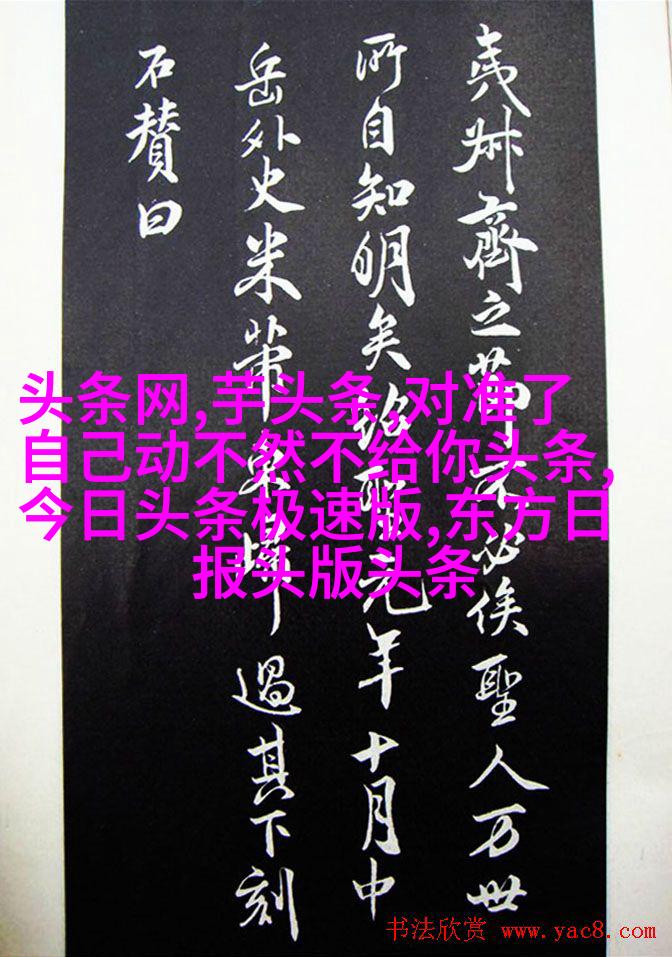 夷叔齊之不必俟聖人万世
所自知明矣紹聖元年十月中
岳外史米芾過其下刻
石賛曰
头条网,芋头条,对准了
自己动不然不给你头条,
今日头条极速版,东方日
报头版头条
书法欣赏 www.yac8.com